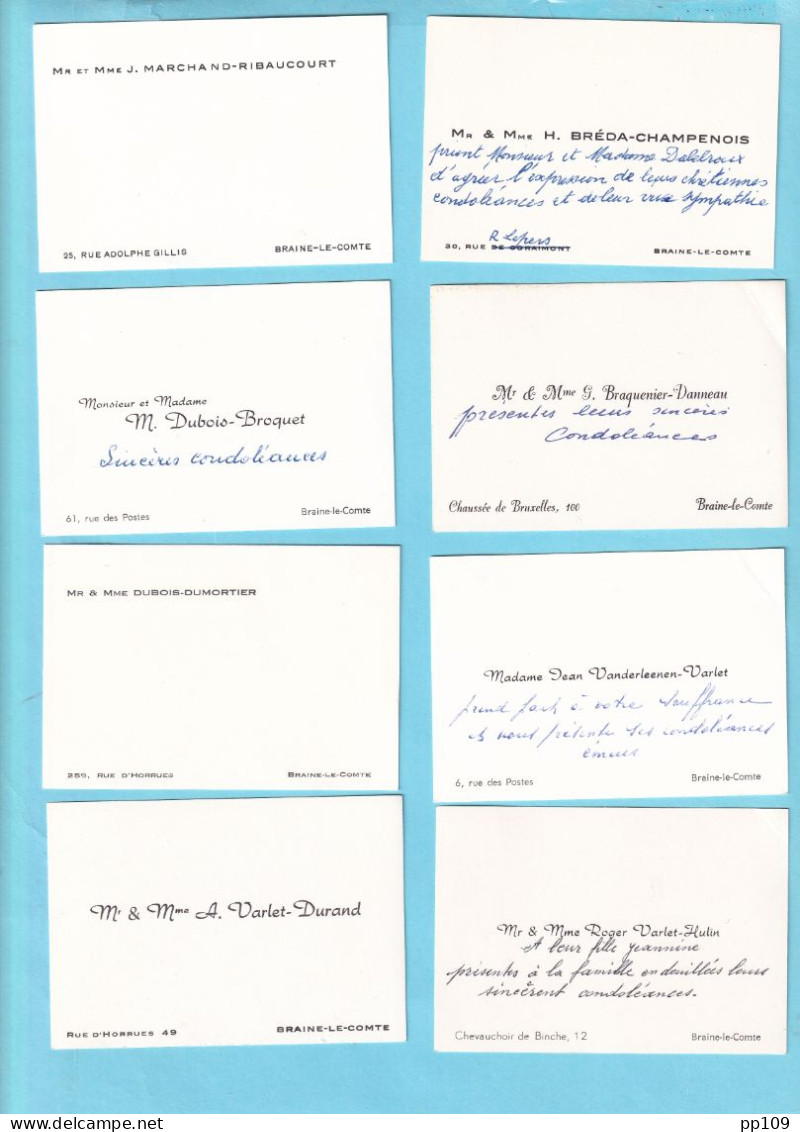 Mr et Mme J. MARCHAND-RIBAUCOURT
25, RUE ADOLPHE GILLIS BRAINE-LE-COMTE
Mr & Mme H. BRÉDA-CHAMPENOIS
prient Monsieur et Madame
d'agréer l'expression de leurs chrétiennes
condoléances et de leur vive sympathie
R. Lepers
30, RUE BRAINE-LE-COMTE
Monsieur et Madame
M. Dubois-Broquet
Sincères condoléances
61, rue des Postes Braine-le-Comte
Mr & Mme G. Braquenier-Danneau
présentes leurs sincères
Condoléances
Chaussée de Bruxelles, 100 Braine-le-Comte
Mr & Mme DUBOIS-DUMORTIER
259, RUE D'HORRUES BRAINE-LE-COMTE
Madame Jean Vanderleenen-Varlet
prend part à votre souffrance
et vous présente ses condoléances
émues
6, rue des Postes Braine-le-Comte
Mr & Mme A. Varlet-Durand
RUE D'HORRUES 49 BRAINE-LE-COMTE
Mr & Mme Roger Varlet-Hulin
& leur fille Jeannine
présentes à la famille endeuillées leurs
sincèrent condoléances.
Chevauchoir de Binche, 12 Braine-le-Comte
pp109